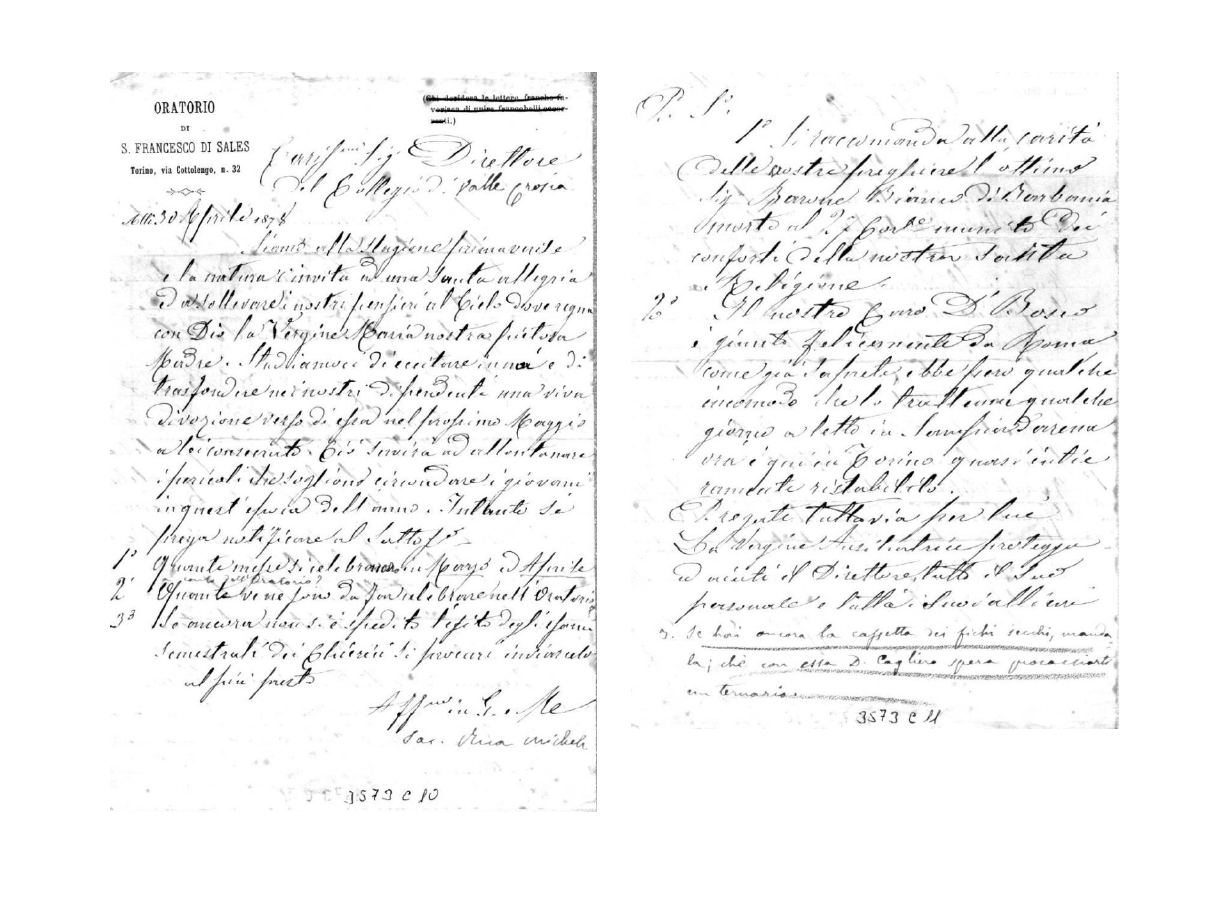 ORATORIO
DI
S. FRANCESCO DI SALES
Torino, via Cottolengo, n. 32
(Chi desidera le lettere franche fa-
vorisca di unire francobolli occor-
renti.)
Cariss.mi Sig. Direttore
del Collegio di Valle Crosia
Alli 30 Aprile 1878
Siamo alla stagione primaverile
e la natura c'invita ad una santa allegria
ed a sollevare i nostri pensieri al Cielo dove regna
con Dio la Vergine Maria nostra pietosa
Madre. Studiamoci di eccitare in noi e di
trasfondere nei nostri dipendenti una viva
divozione verso di essa nel prossimo Maggio
a lei consecrato. Ciò servirà ad allontanare
i pericoli che sogliono circondare i giovani
in quest'epoca dell'anno. Intanto si
prega notificare al Sotto
1° Quante messe si celebrarono in Marzo ed Aprile
dell'Oratorio?
2° Quante ve ne sono da far celebrare nell'Oratorio
3° Se ancora non si è spedito l'esito degli esami
semestrali dei Chierici si procuri inviarcelo
al più presto
Aff.mo in G. e M.
Sac. Rua Michele
3573 C 10
P. S.
1° Si raccomanda alla carità
delle vostre preghiere l'ottimo
Sig. Barone Bianco di Barbania
morto al 27 Cor.te munito dei
conforti della nostra Santa
Religione.
2° Il nostro Caro D. Bosco
è giunto felicemente da Roma
come già saprete; ebbe però qualche
incomodo che lo trattenne qualche
giorno a letto in Sampierdarena
ora è qui in Torino quasi intie
ramente ristabilito.
Pregate tuttavia per lui
La Vergine Ausiliatrice protegga
ed aiuti il Direttore, tutto il suo
personale e tutti i suoi allievi
3. Se hai ancora la cassetta dei fichi secchi, manda
la; chè con essa D. Cagliero spera procacciarti
un ternario.
3573 C 11